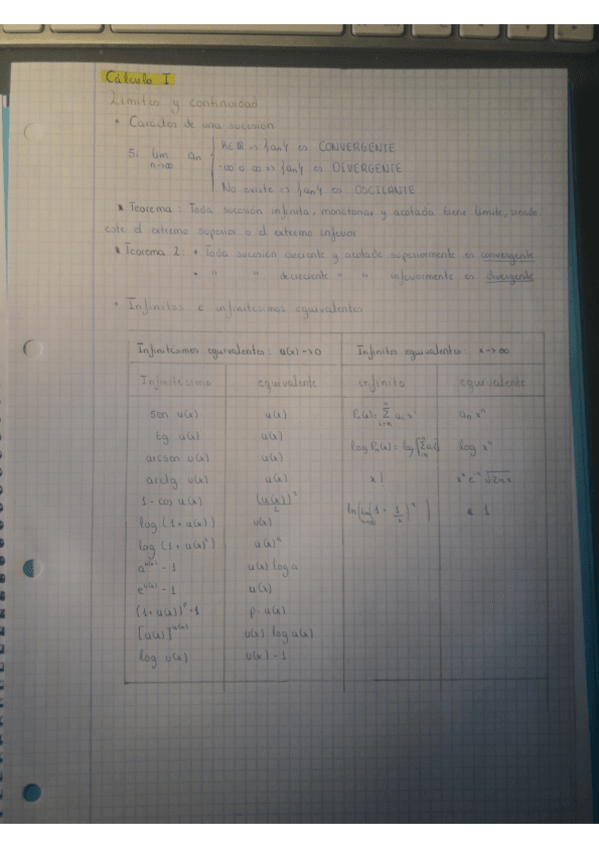 Cálculo I
Límites y continuidad
• Carácter de una sucesión
Si lim n→∞ an { k∈ℝ => {an} es CONVERGENTE
-∞ o ∞ => {an} es DIVERGENTE
No existe => {an} es OSCILANTE
* Teorema: Toda sucesión infinita, monótona y acotada tiene límite, siendo
este el extremo superior o el extremo inferior
* Teorema 2: • Toda sucesión creciente y acotada superiormente es convergente
• " " decreciente " " inferiormente es divergente
• Infinitos e infinitésimos equivalentes
Infinitésimos equivalentes: u(x)→0 Infinitos equivalentes: x→∞
Infinitésimo equivalente infinito equivalente
sen u(x) u(x) Pn(x)= Σ ai xⁱ an xⁿ
tg u(x) u(x)
log Pn(x) = log xⁿ
arcsen u(x) u(x)
arctg u(x) u(x) x! xˣ e⁻ˣ √2πx
1 - cos u(x) (u(x))²/2
log (1 + u(x)) u(x)
log (1 + u(x)ⁿ) u(x)ⁿ
a^u(x) - 1 u(x) log a
e^u(x) - 1 u(x)
(1 + u(x))^p - 1 p · u(x)
[u(x)]^u(x) u(x) log u(x)
log u(x) u(x) - 1